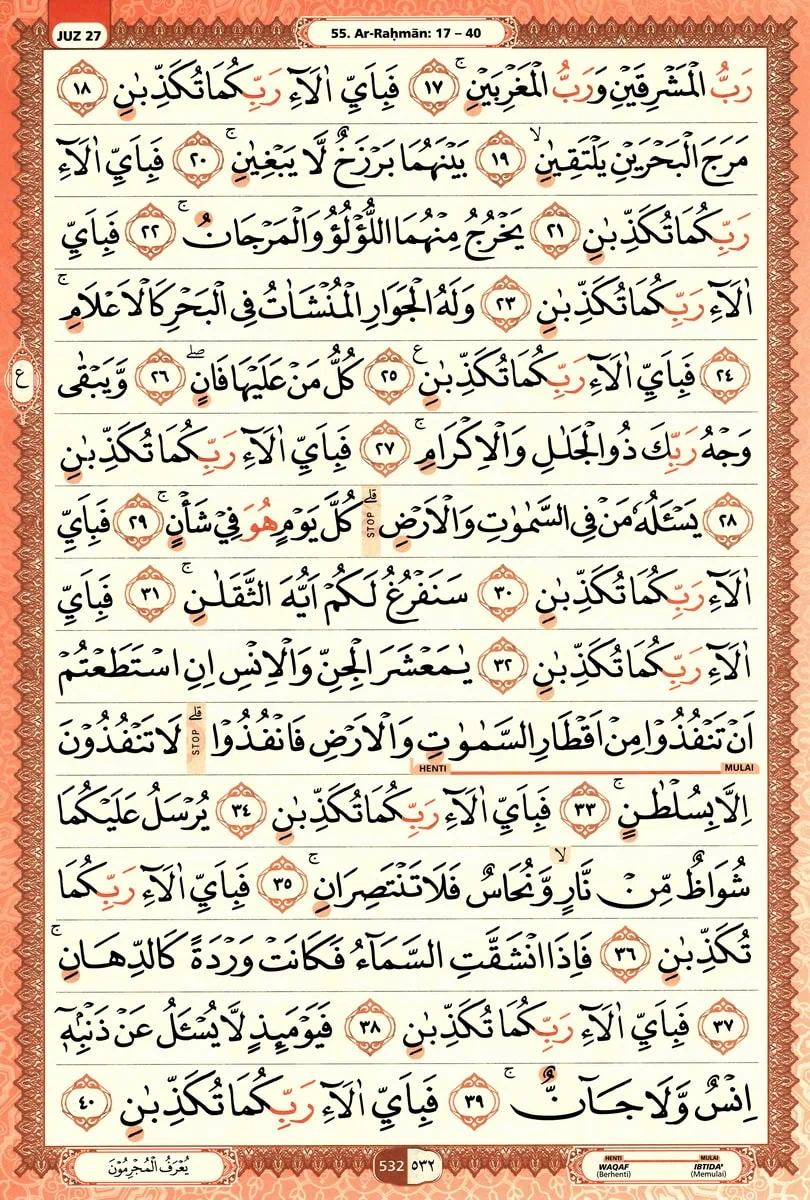 JUZ 27
55. Ar-Raḥmān: 17 – 40
رَبُّ الْمَشْرِقَيْنِ وَرَبُّ الْمَغْرِبَيْنِۚ ١٧ فَبِاَيِّ اٰلَاۤءِ رَبِّكُمَا تُكَذِّبٰنِ ١٨
مَرَجَ الْبَحْرَيْنِ يَلْتَقِيٰنِۙ ١٩ بَيْنَهُمَا بَرْزَخٌ لَّا يَبْغِيٰنِۚ ٢٠ فَبِاَيِّ اٰلَاۤءِ
رَبِّكُمَا تُكَذِّبٰنِ ٢١ يَخْرُجُ مِنْهُمَا اللُّؤْلُؤُ وَالْمَرْجَانُۚ ٢٢ فَبِاَيِّ
اٰلَاۤءِ رَبِّكُمَا تُكَذِّبٰنِ ٢٣ وَلَهُ الْجَوَارِ الْمُنْشَاٰتُ فِى الْبَحْرِ كَالْاَعْلَامِۚ
٢٤ فَبِاَيِّ اٰلَاۤءِ رَبِّكُمَا تُكَذِّبٰنِࣖ ٢٥ كُلُّ مَنْ عَلَيْهَا فَانٍۖ ٢٦ وَّيَبْقٰى
ع
وَجْهُ رَبِّكَ ذُو الْجَلٰلِ وَالْاِكْرَامِۚ ٢٧ فَبِاَيِّ اٰلَاۤءِ رَبِّكُمَا تُكَذِّبٰنِ
٢٨ يَسْـَٔلُهٗ مَنْ فِى السَّمٰوٰتِ وَالْاَرْضِۗ STOP كُلَّ يَوْمٍ هُوَ فِيْ شَأْنٍۚ ٢٩ فَبِاَيِّ
اٰلَاۤءِ رَبِّكُمَا تُكَذِّبٰنِ ٣٠ سَنَفْرُغُ لَكُمْ اَيُّهَ الثَّقَلٰنِۚ ٣١ فَبِاَيِّ
اٰلَاۤءِ رَبِّكُمَا تُكَذِّبٰنِ ٣٢ يٰمَعْشَرَ الْجِنِّ وَالْاِنْسِ اِنِ اسْتَطَعْتُمْ
اَنْ تَنْفُذُوْا مِنْ اَقْطَارِ السَّمٰوٰتِ وَالْاَرْضِ فَانْفُذُوْاۗ STOP لَا تَنْفُذُوْنَ
HENTI MULAI
اِلَّا بِسُلْطٰنٍۚ ٣٣ فَبِاَيِّ اٰلَاۤءِ رَبِّكُمَا تُكَذِّبٰنِ ٣٤ يُرْسَلُ عَلَيْكُمَا
شُوَاظٌ مِّنْ نَّارٍۙ وَّنُحَاسٌ فَلَا تَنْتَصِرَانِۚ ٣٥ فَبِاَيِّ اٰلَاۤءِ رَبِّكُمَا
تُكَذِّبٰنِ ٣٦ فَاِذَا انْشَقَّتِ السَّمَاۤءُ فَكَانَتْ وَرْدَةً كَالدِّهَانِۚ
٣٧ فَبِاَيِّ اٰلَاۤءِ رَبِّكُمَا تُكَذِّبٰنِ ٣٨ فَيَوْمَىِٕذٍ لَّا يُسْـَٔلُ عَنْ ذَنْۢبِهٖٓ
اِنْسٌ وَّلَا جَاۤنٌّۚ ٣٩ فَبِاَيِّ اٰلَاۤءِ رَبِّكُمَا تُكَذِّبٰنِ ٤٠
يُعْرَفُ الْمُجْرِمُوْنَ
532 ٥٣٢
HENTI MULAI
WAQAF IBTIDA'
(Berhenti) (Memulai)